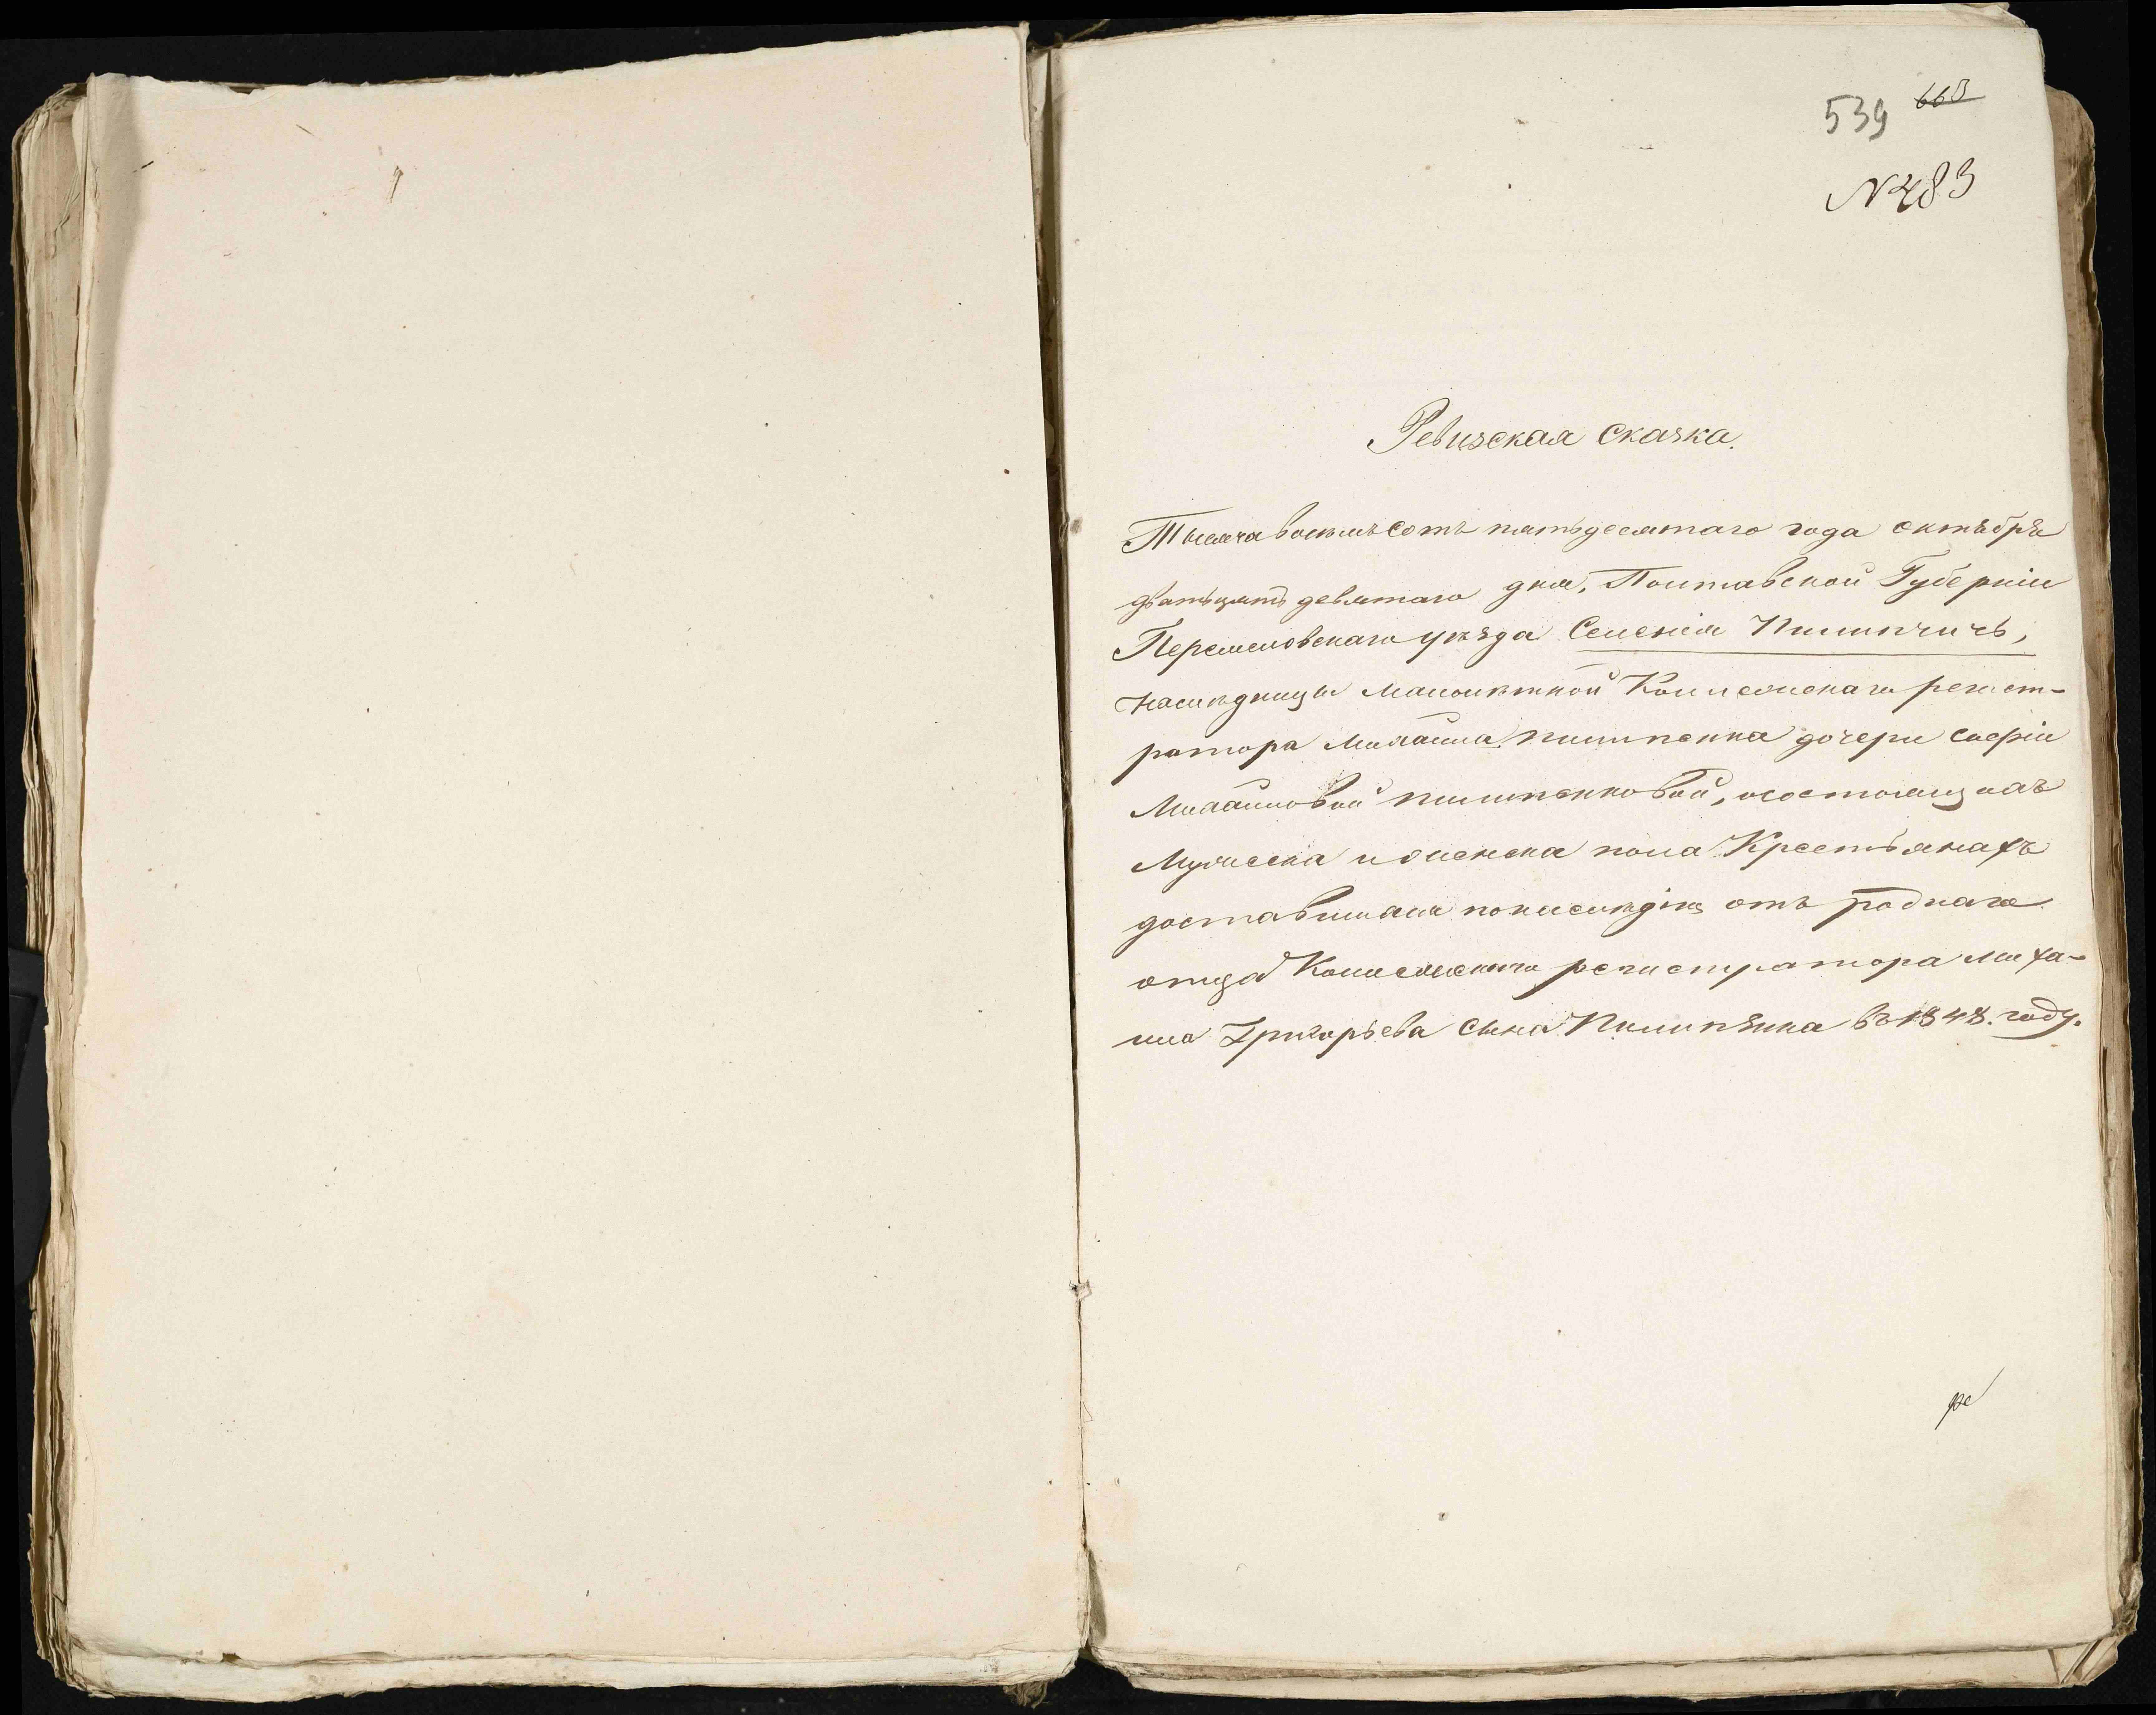 539 668
N 483
Ревизская сказка.
Тысяча восемьсотъ пятьдесятаго года октября
дватцять девятаго дня, Полтавской Губерніи
Переяславскаго уѣзда Селенія Пилипчичь,
наследницы малолѣтной Коллежскаго регист-
ратора Михаила Пилипенка дочери Софіи
Михайловой Пилипенковой, о состоящихъ
Мужеска и женска пола Крестьянахъ
доставшихся по наследію отъ роднаго
отца Колежскаго регистратора Миха-
ила Григорьева сына Пилипенка въ 1848. году.